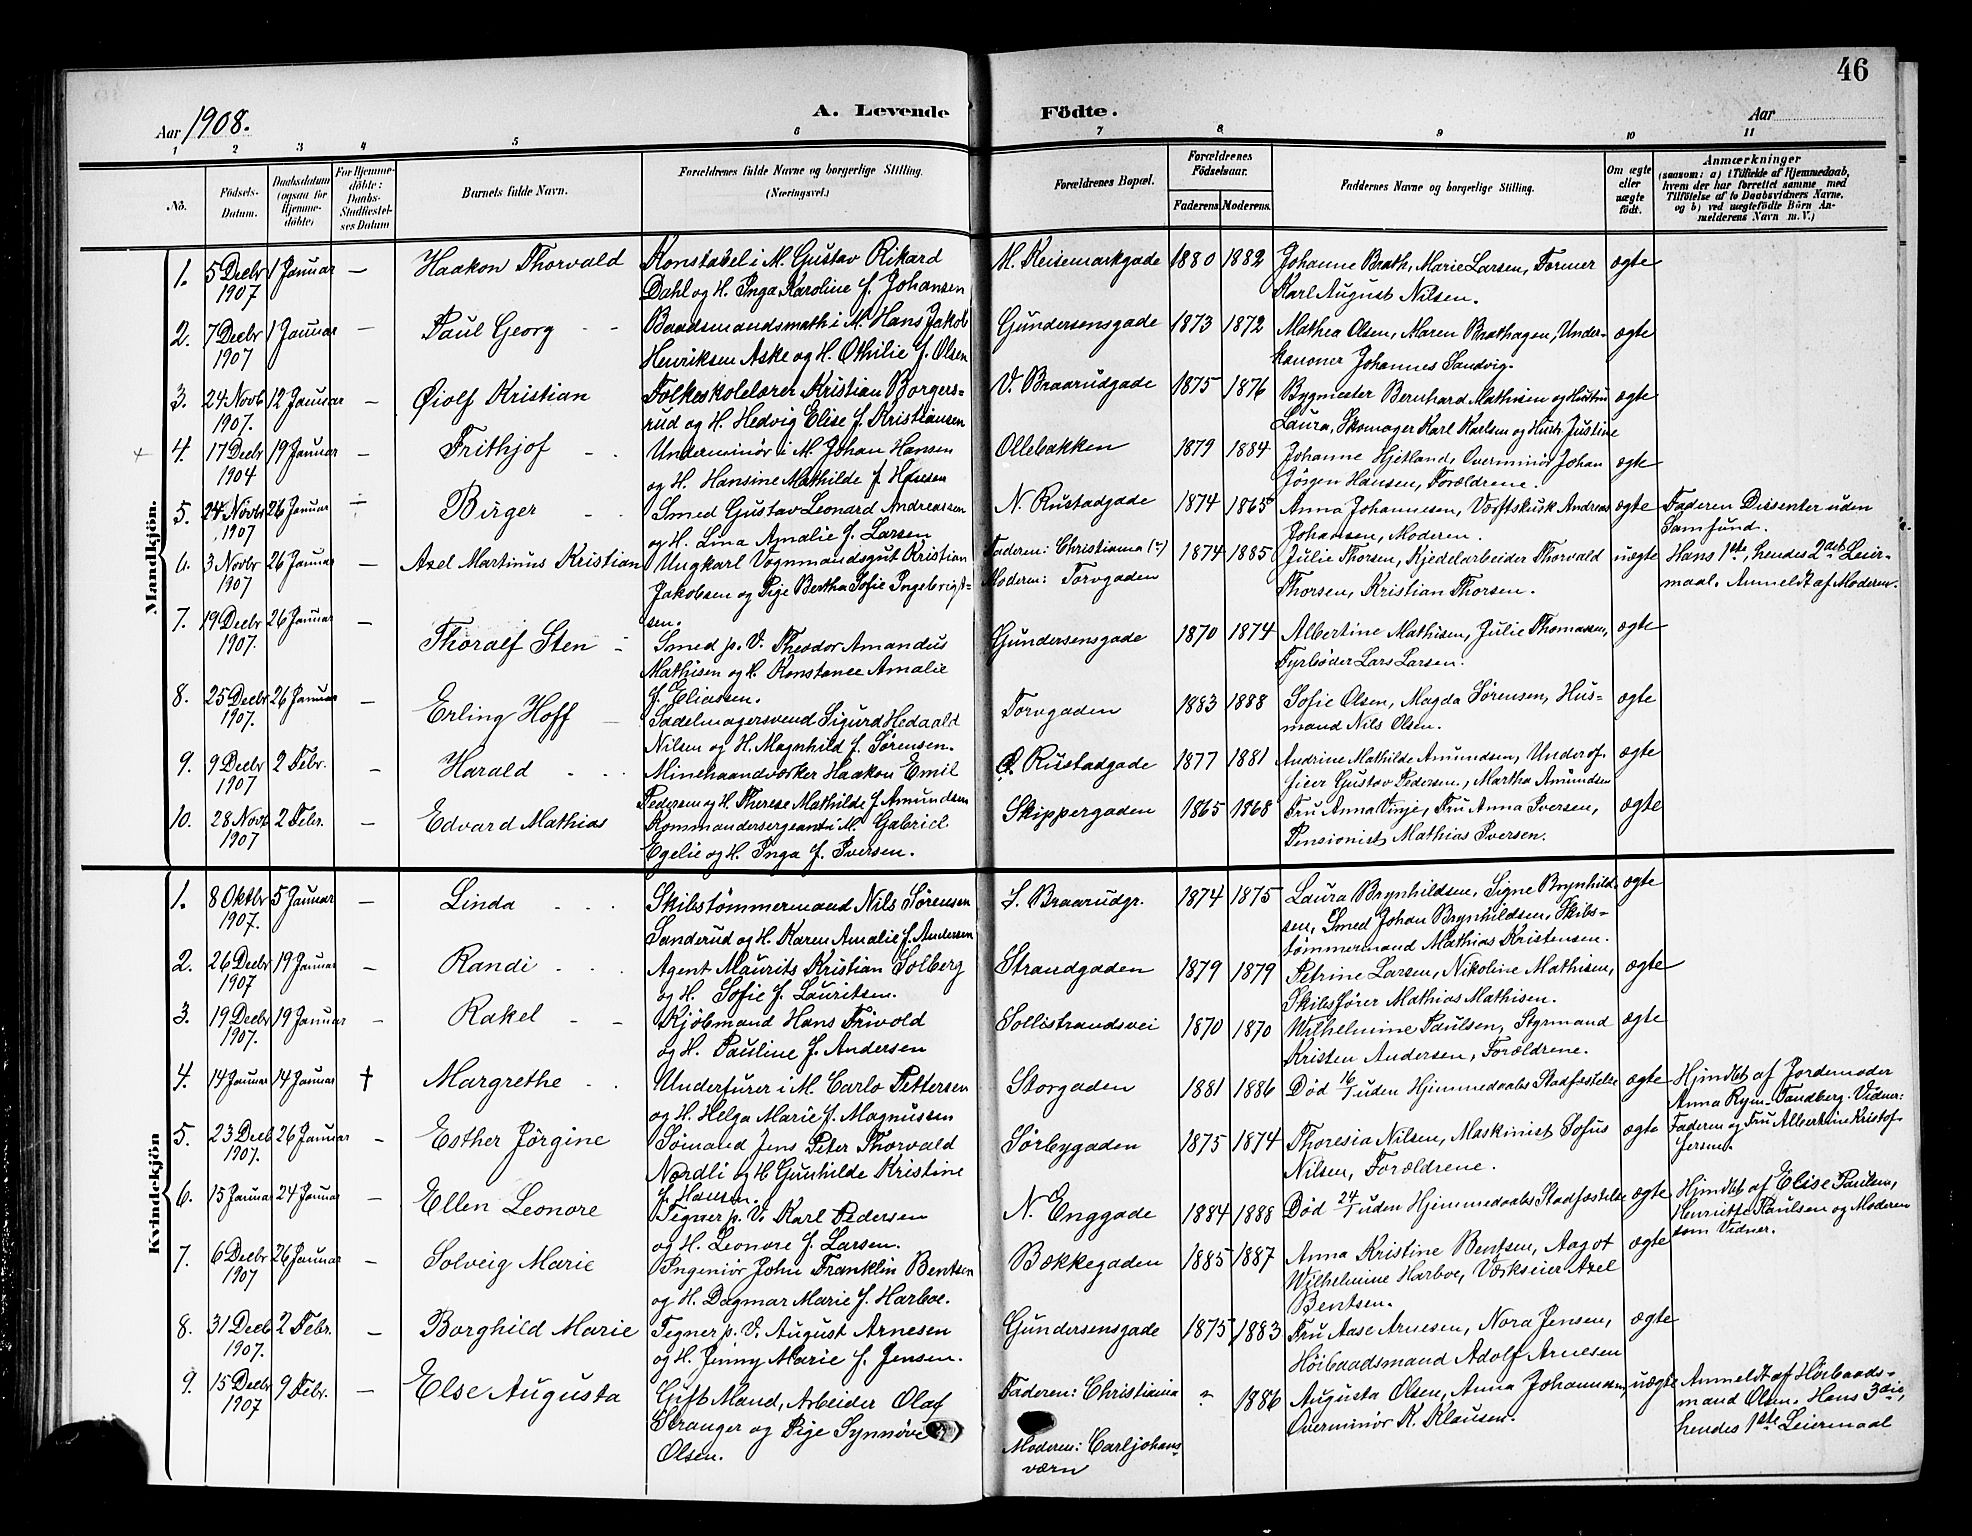 46
A. Levende Födte.
Aar 1908.
Aar
1 2 3 4 5 6 7 8 9 10 11
No.
Födsels-Datum.
Daabsdatum (ogsaa for Hjemme-döbte)
For Hjemme-döbte: Daabs-Stadfæstel-ses Datum
Barnets fulde Navn.
Forældrenes fulde Navne og borgerlige Stilling. (Næringsvei.)
Forældrenes Bopæl.
Forældrenes Födselsaar.
Faderens. Moderens.
Faddernes Navne og borgerlige Stilling.
Om ægte eller uægte födt.
Anmærkninger
(saasom: a) i Tilfælde af Hjemmedaab,
hvem der har forrettet samme med
Tilföielse af to Daabsvidners Navne,
og b) ved uægtefödte Börn An-
melderens Navn m. V.)
Mandkjön.
1. 5 Decbr 1907 1 Januar — Haakon Thorvald
Konstabel i M. Gustav Rikard
Dahl og H. Inga Karoline f. Johansen
M. Keisemarkgade 1880 1882
Johanne Brath, Marie Larsen, Former
Karl August Nilsen.
ægte
2. 7 Decbr 1907 1 Januar — Paul Georg
Baadsmandsmath i M. Hans Jakob
Henriksen Aske og H. Othilie f. Olsen
Gundersensgade 1873 1872
Mathea Olsen, Maren Brathagen, Under-
kanoner Johannes Sandvig.
ægte
3. 24 Novb 1907. 12 Januar — Øiolf Kristian
Folkeskolelærer Kristian Borgers-
rud og H. Hedvig Elise f. Kristiansen
V. Braarudgade 1875 1876
Bygmester Bernhard Mathisen og Hustru
Laura, Skomager Karl Karlsen og Hust. Justine
ægte
+ 4. 17 Decbr 1904 19 Januar — Frithjof
Underminör i M. Johan Hansen
og H. Hansine Mathilde f. Hansen
Ollebakken 1879 1884
Johanne Hjetland, Overminör Johan
Jörgen Hansen, Forældrene.
ægte
5. 24 Novbr 1907 26 Januar — Birger
Smed Gustav Leonard Andreassen
og H. Lina Amalie f. Larsen
N. Rustadgade 1874 1865
Anna Johannesen, Værftskusk Andreas
Johansen, Moderen.
ægte
Faderen Dissenter uden
Samfund.
6. 3 Novbr 1907 26 Januar — Axel Martinus Kristian
Ungkarl Vognmandsgut Kristian
Jakobsen og Pige Bertha Sofie Ingebrigt-
sen.
Faderen: Christiania (?)
Moderen: Torvgaden
1874 1885
Julie Thorsen, Kjedelarbeider Thorvald
Thorsen, Kristian Thorsen.
uægte
Hans 1ste, hendes 2det Leier-
maal. Anmeldt af Moderen.
7. 19 Decbr 1907. 26 Januar — Thoralf Sten
Smed p. V. Theodor Amandus
Mathisen og H. Konstance Amalie
f. Eliassen.
Gundersensgade 1870 1874
Albertine Mathisen, Julie Thomassen,
Fyrböder Lars Larsen.
ægte
8. 25 Decbr 1907. 26 Januar — Erling Hoff
Sadelmagersvend Sigurd Hedaald
Nilsen og H. Magnhild f. Sørensen.
Torvgaden 1883 1888
Sofie Olsen, Magda Sørensen, Hus-
mand Nils Olsen.
ægte
9. 9 Decbr 1907 2 Febr. — Harald
Minehaandværker Haakon Emil
Pedersen og H. Therese Mathilde f. Amundsen
Ø. Rustadgade 1877 1881
Andrine Mathilde Amundsen, Underof-
ficer Gustav Pedersen, Martha Amundsen
ægte
10. 28 Novb 1907 2 Febr. — Edvard Mathias
Kommandersergeant i M. Gabriel
Egelie og H. Inga f. Iversen.
Skippergaden 1865 1868
Fru Anna Vinje, Fru Anna Iversen,
Pensionist Mathias Iversen.
ægte
Kvindekjön
1. 8 Oktbr 1907. 5 Januar — Linda
Skibstömmermand Nils Sørensen
Sanderud og H. Karen Amalie f. Andersen
S. Braarudgr. 1874 1875
Laura Brynhildsen, Signe Brynhild-
sen, Smed Johan Brynhildsen, Skibs-
tömmermand Mathias Kristensen.
ægte
2. 26 Decbr 1907 19 Januar — Randi
Agent Maurits Kristian Solberg
og H. Sofie f. Lauritsen.
Strandgaden 1879 1879
Petrine Larsen, Nikoline Mathisen,
Skibsförer Mathias Mathisen.
ægte
3. 19 Decbr 1907. 19 Januar — Rakel
Kjöbmand Hans Trivold
og H. Pauline f. Andersen
Sollistrandsvei 1870 1870
Wilhelmine Paulsen, Styrmand
Kristen Andersen, Forældrene.
ægte
4. 14 Januar 14 Januar † Margrethe
Underfurer i M. Carlo Pettersen
og H. Helga Marie f. Magnussen
Storgaden 1881 1886
Död 16/1 uden Hjemmedaabs Stadfæstelse
ægte
Hjmdbt af Jordemoder
Anna Rym-Tandberg. Vidner:
Faderen og Fru Albertine Kristof-
fersen.
5. 23 Decb 1907. 26 Januar — Esther Jörgine
Sömand Jens Peter Thorvald
Nordli og H. Gunhilde Kristine
f. Hansen.
Sörbygaden 1875 1874
Thoresia Nilsen, Maskinist Sofus
Nilsen, Forældrene.
ægte
6. 15 Januar 24 Januar — Ellen Leonore
Tegner p. V. Karl Pedersen
og H. Leonore f. Larsen.
N. Enggade 1884 1888
Död 24/1 uden Hjemmedaabs Stadfæstelse
ægte
Hjmdbt af Elise Paulsen,
Henriette Paulsen og Moderen
som Vidner.
7. 6 Decbr 1907 26 Januar — Solveig Marie
Ingeniör John Franklin Bentsen
og H. Dagmar Marie f. Harboe.
Bækkegaden 1885 1887
Anna Kristine Bentsen, Aagot
Wilhelmine Harboe, Værkseier Axel
Bentsen.
ægte
8. 31 Decb 1907. 2 Febr. — Borghild Marie
Tegner p. V. August Arnesen
og H. Jinny Marie f. Jensen.
Gundersensgade 1875 1883
Fru Aase Arnesen, Nora Jensen,
Höibaadsmand Adolf Arnesen
ægte
9. 15 Decbr 1907 9 Febr. — Else Augusta
Gift Mand, Arbeider Olaf
Stranger og Pige Synnöve
Olsen.
Faderen: Christiania
Moderen: Carljohans-
værn
" 1886
Augusta Olsen, Anna Johannesen,
Overminör K. Klausen.
uægte
Anmeldt af Höibaads-
mand Olsen. Hans 3die,
hendes 1ste Leiermaal